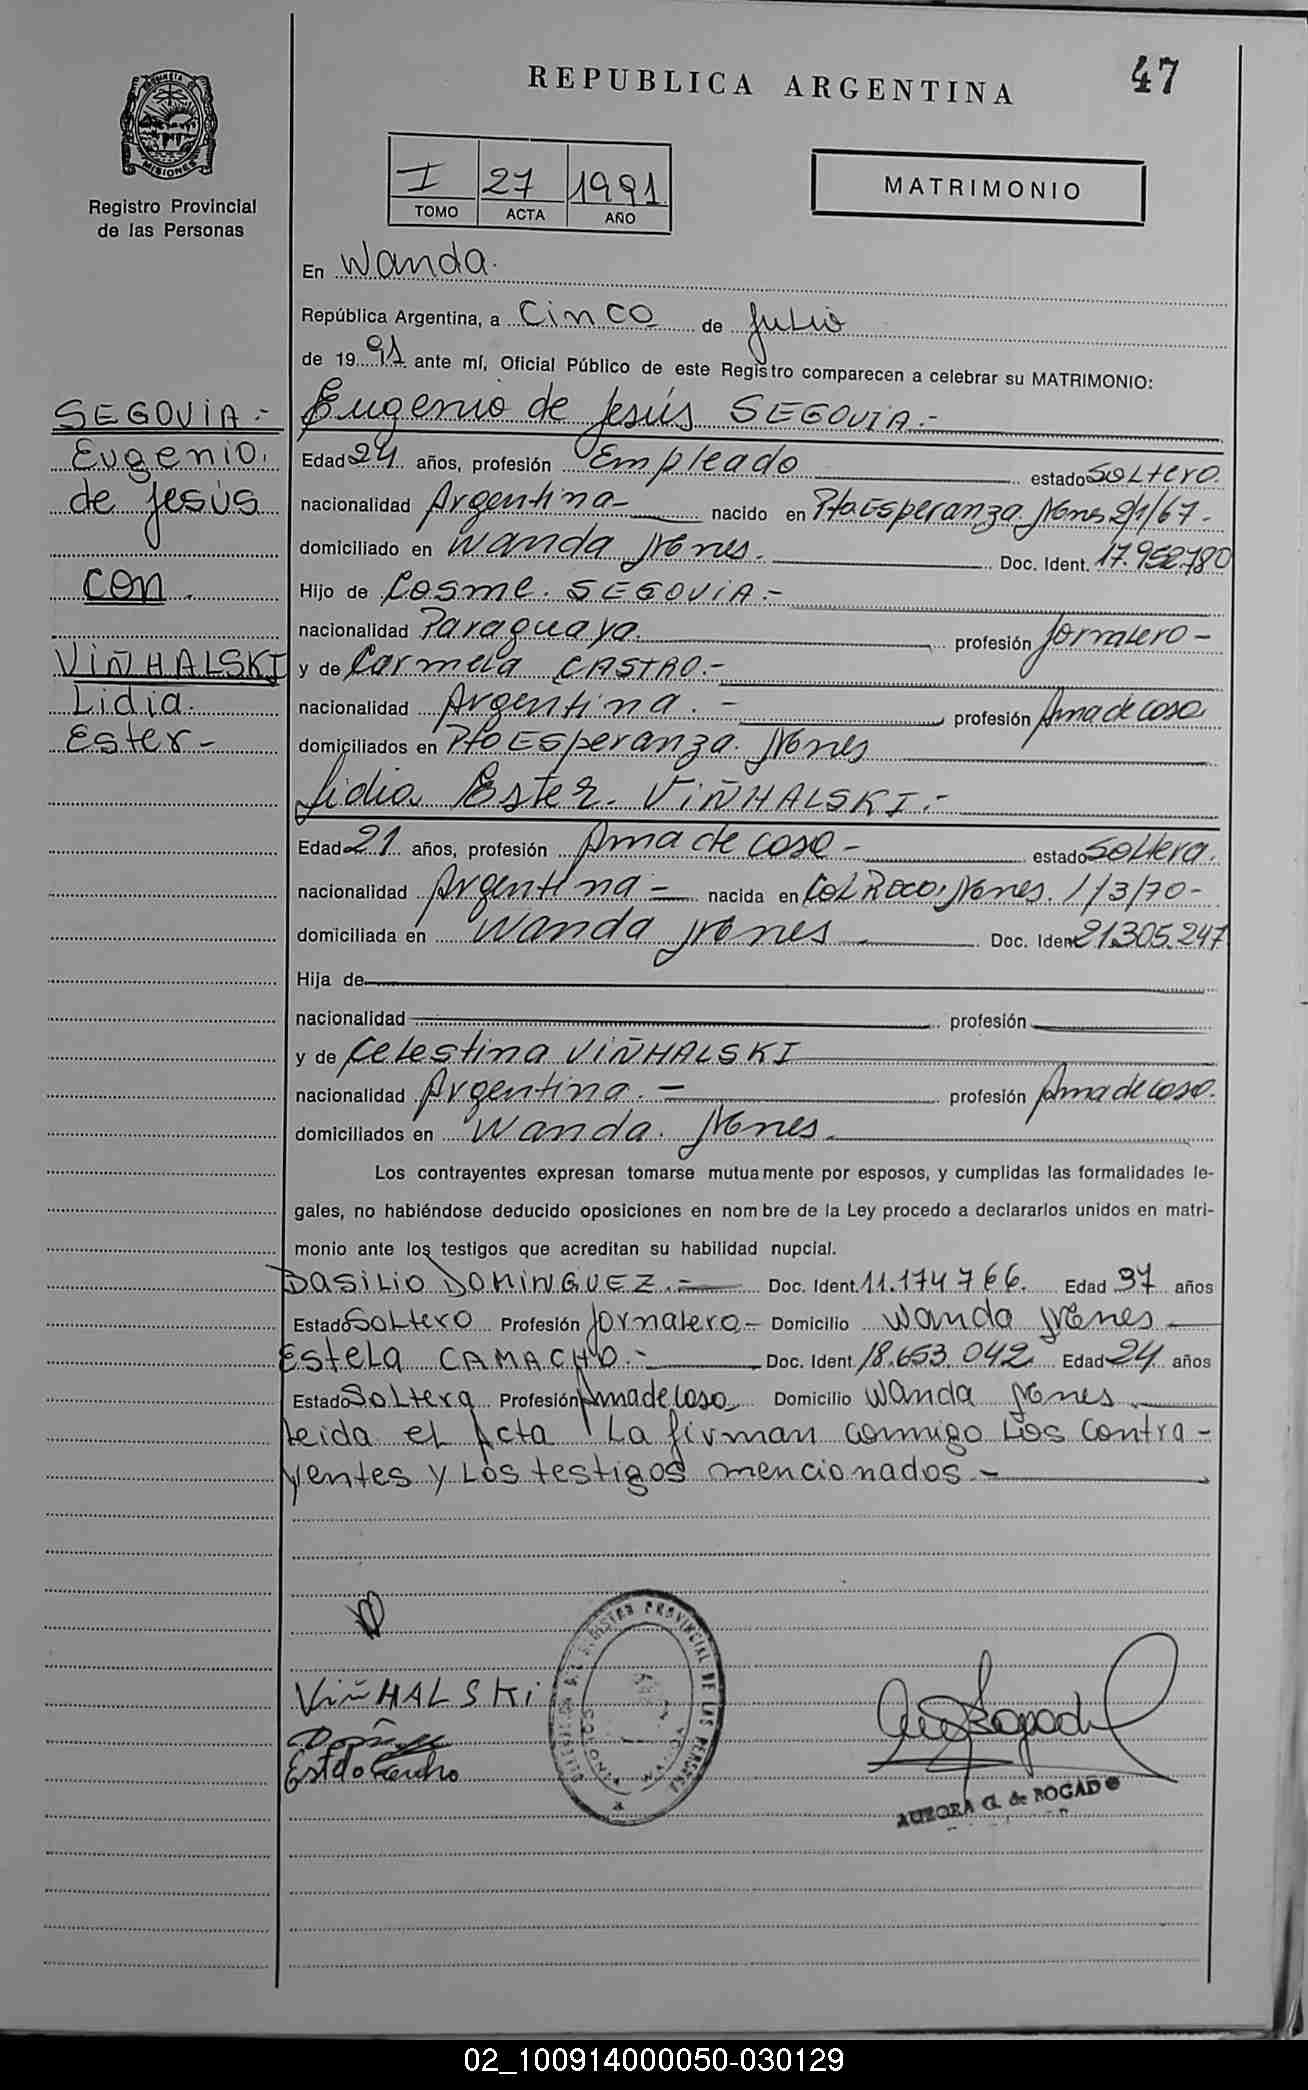 47
REPUBLICA ARGENTINA
MISIONES
Registro Provincial
de las Personas
I 27 1991
TOMO ACTA AÑO
MATRIMONIO
En Wanda.
República Argentina, a Cinco de Julio
de 1991 ante mí, Oficial Público de este Registro comparecen a celebrar su MATRIMONIO:
SEGOVIA.-
Eugenio
de Jesús
con.
VIÑHALSKI
Lidia
Ester-
Eugenio de Jesús SEGOVIA.-
Edad 24 años, profesión Empleado estado Soltero.
nacionalidad Argentina- nacido en Pto Esperanza Mnes 2/1/67-
domiciliado en Wanda Mnes. Doc. Ident. 17.952.780
Hijo de Cosme. SEGOVIA.-
nacionalidad Paraguaya profesión Jornalero-
y de Carmela CASTRO.-
nacionalidad Argentina.- profesión Ama de casa
domiciliados en Pto Esperanza. Mnes
Lidia Ester. VIÑHALSKI.-
Edad 21 años, profesión Ama de casa- estado Soltera.
nacionalidad Argentina- nacida en Mnes. 1/3/70-
domiciliada en Wanda Mnes Doc. Iden 21.305.247
Hija de
nacionalidad profesión
y de Celestina VIÑHALSKI
nacionalidad Argentina.- profesión Ama de casa.
domiciliados en Wanda. Mnes.
Los contrayentes expresan tomarse mutuamente por esposos, y cumplidas las formalidades le-
gales, no habiéndose deducido oposiciones en nombre de la Ley procedo a declararlos unidos en matri-
monio ante los testigos que acreditan su habilidad nupcial.
BASILIO DOMINGUEZ.- Doc. Ident. 11.174766. Edad 37 años
Estado Soltero Profesión Jornalero- Domicilio Wanda Mnes
Estela CAMACHO.- Doc. Ident 18.653.042 Edad 24 años
Estado Soltera Profesión Ama de casa Domicilio Wanda Mnes
Leida el Acta La firman conmigo Los contra-
yentes y Los testigos mencionados-
VIÑHALSKI
REGISTRO PROVINCIAL DE LAS PERSONAS
AURORA G. de ROGADO
02_100914000050-030129